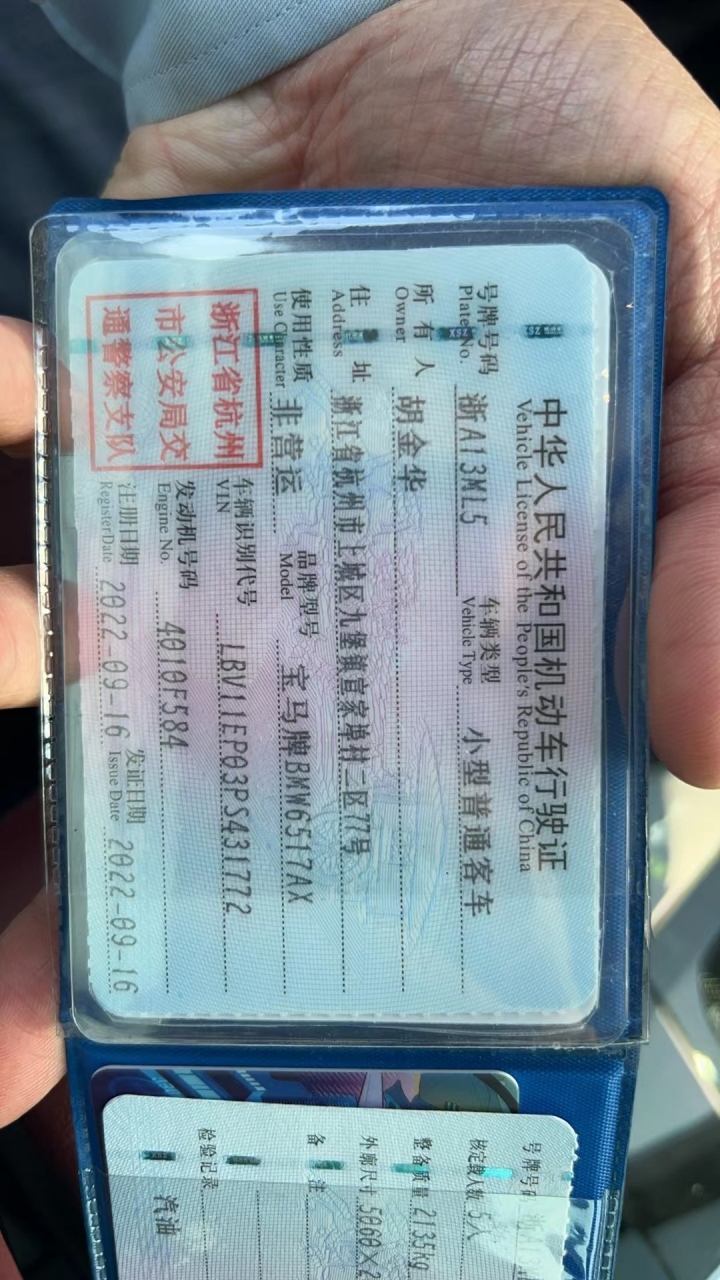 中华人民共和国机动车行驶证
Vehicle License of the People's Republic of China
号牌号码 浙A13ML5 车辆类型 小型普通客车
Plate No. Vehicle Type
所有人 胡金华
Owner
住址 浙江省杭州市上城区九堡镇宣家埠村二区77号
Address
使用性质 非营运 品牌型号 宝马牌BMW6517AX
Use Character Model
浙江省杭州
市公安局交
通警察支队
车辆识别代号 LBV11EP03PS431772
VIN
发动机号码 4010F584
Engine No.
注册日期 2022-09-16 发证日期 2022-09-16
Register Date Issue Date
号牌号码
核定载人数 5人
整备质量 2135kg
外廓尺寸 5060×2
备注
检验记录
汽油